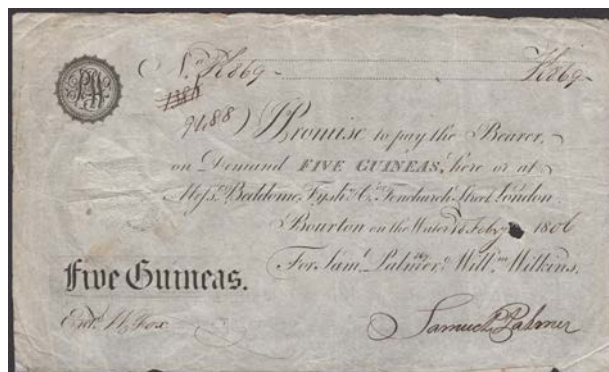 No K869 K869
9488 I Promise to pay the Bearer,
on Demand FIVE GUINEAS, here or at
Messrs. Beddome, Fysh & Co. Fenchurch Street London.
Bourton on the Water Feby 1806
For Saml. Palmer & Willm. Wilkins.
Five Guineas.
Entd. H Fox
Samuel Palmer